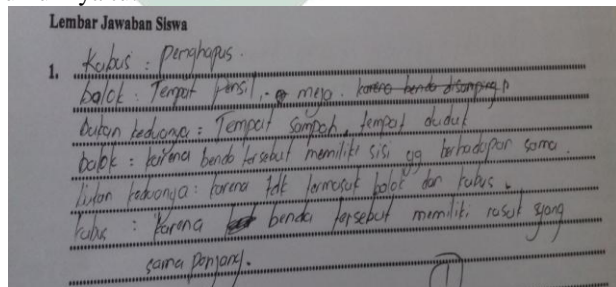 Lembar Jawaban Siswa
1. Kubus : Penghapus.
balok : Tempat pensil, meja. karena benda disamping
bukan keduanya : Tempat sampah, tempat duduk
balok : karena benda tersebut memiliki sisi yg berhadapan sama.
bukan keduanya : karena tdk termasuk balok dan kubus.
kubus : karena benda tersebut memiliki rusuk yang
sama panjang.
1